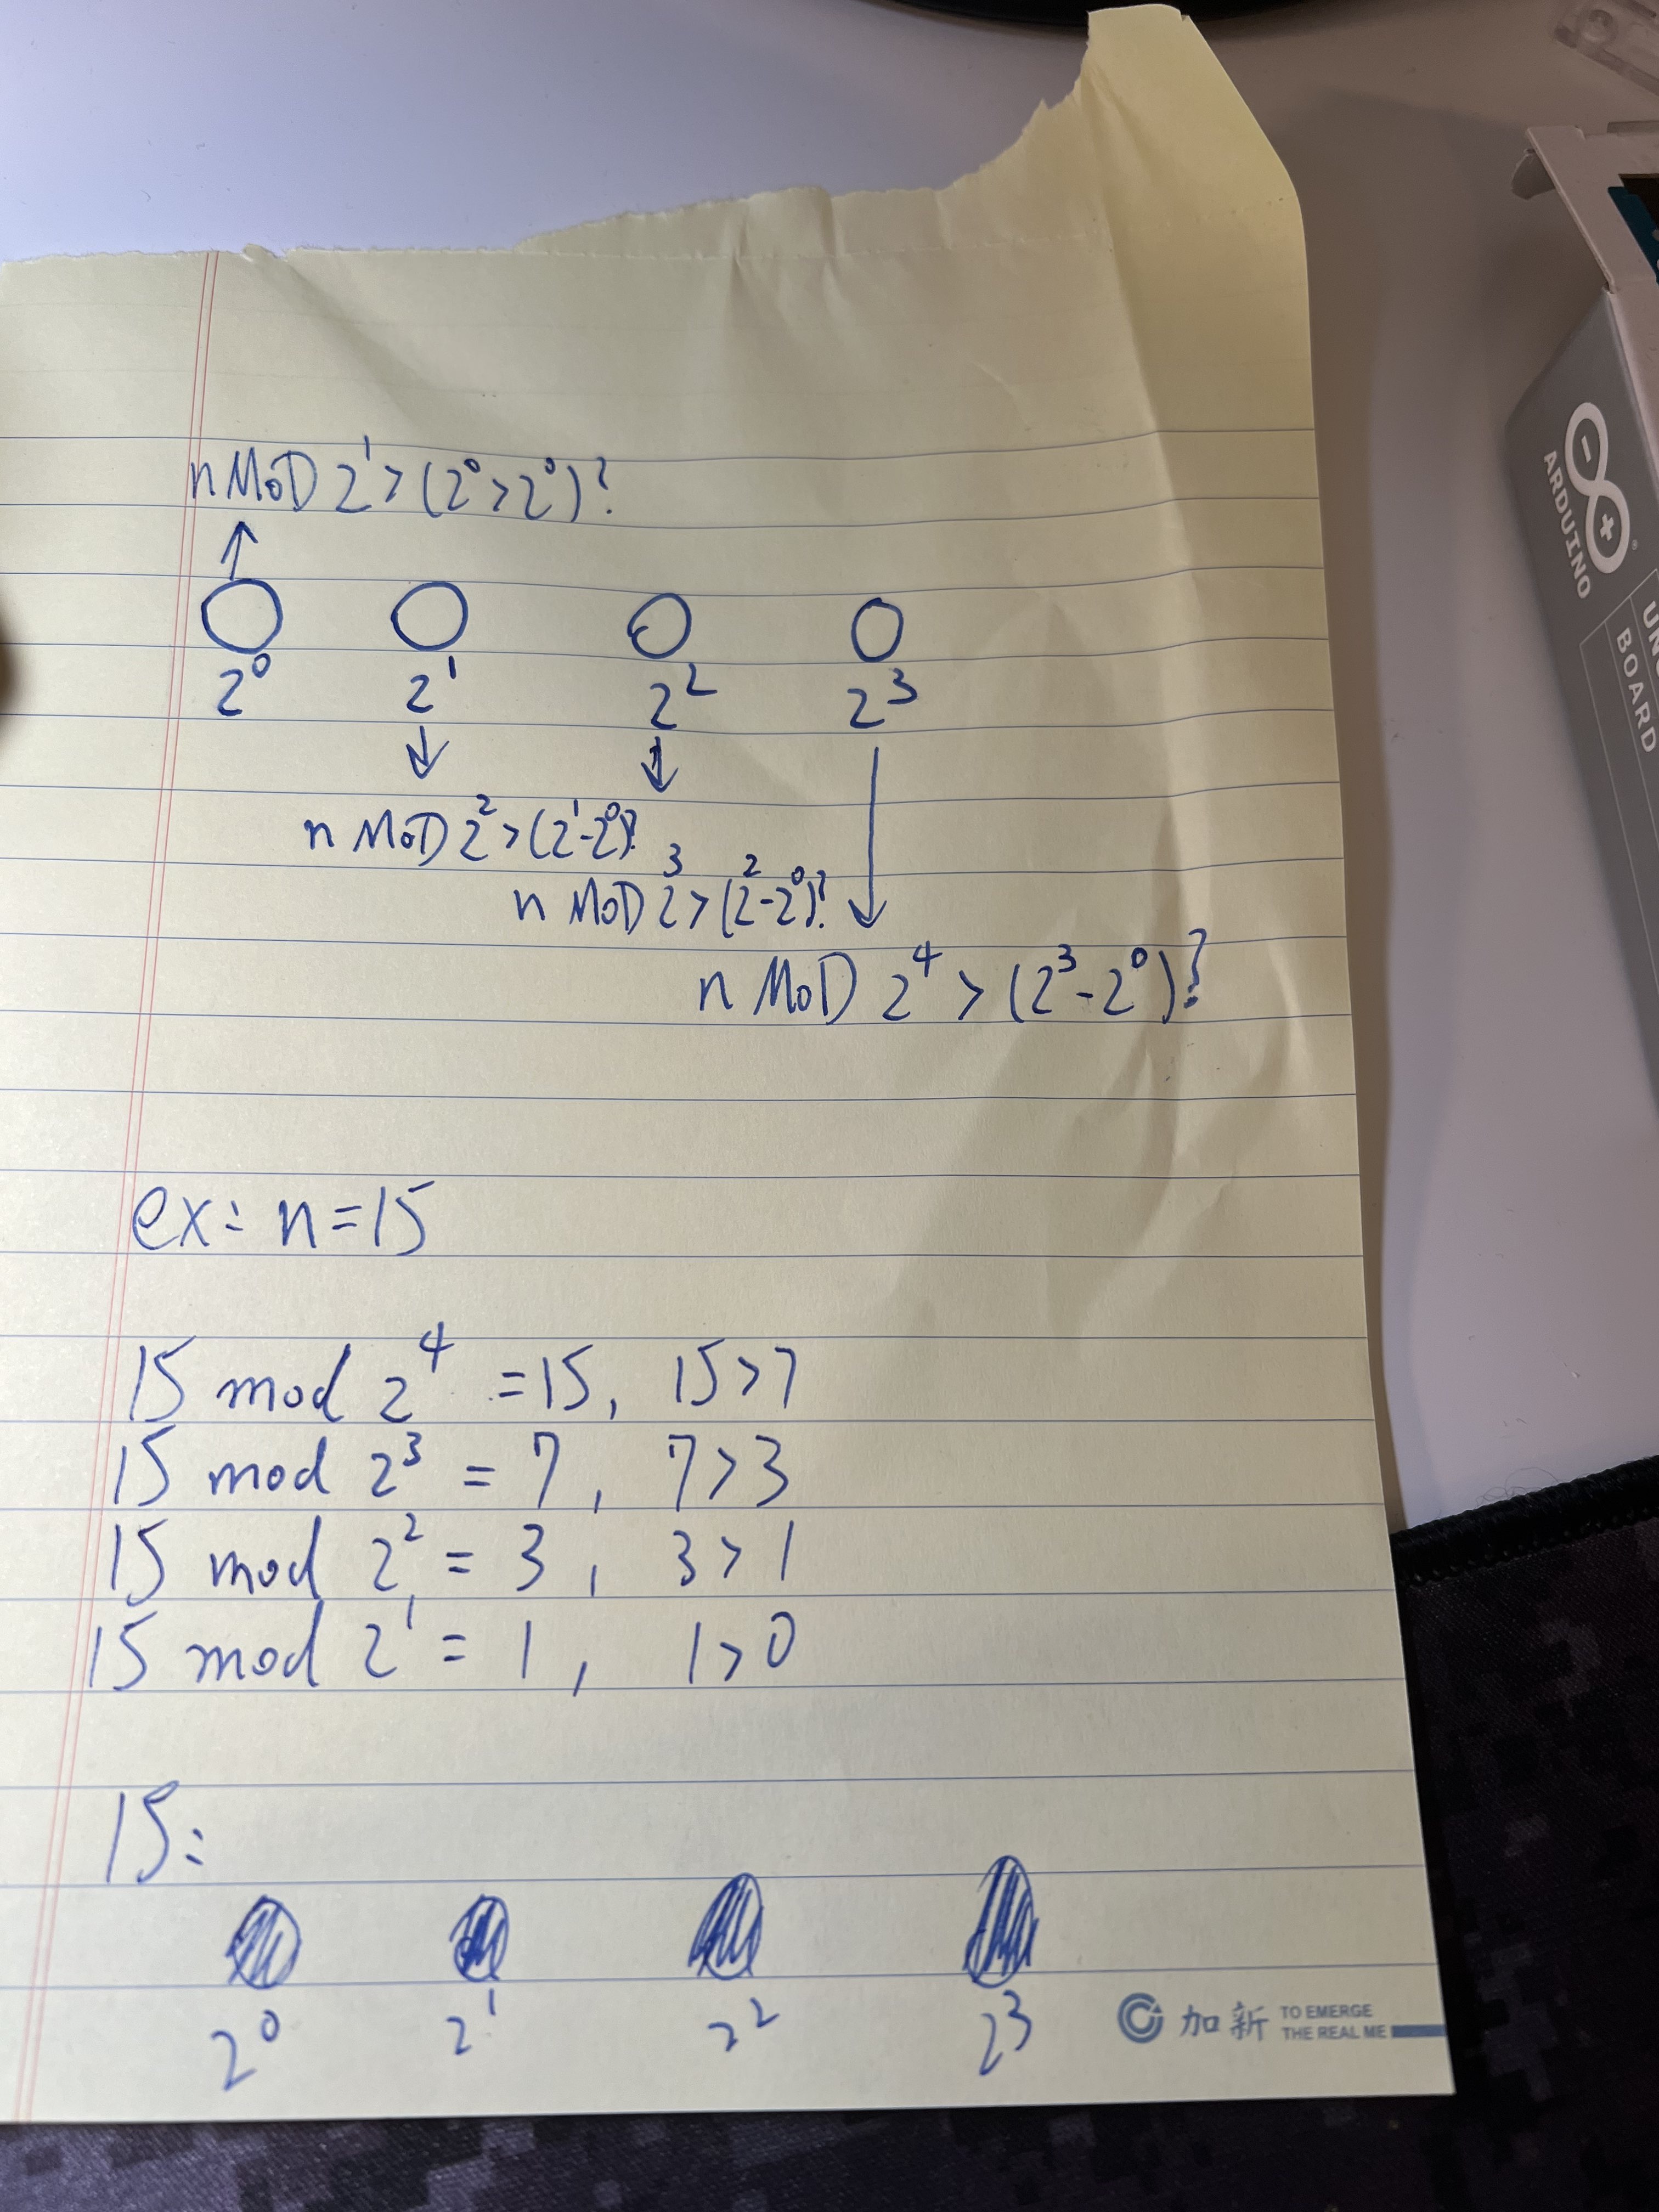 n MOD 2¹ > (2⁰ > 2⁰)?
2⁰ 2¹ 2² 2³
n MOD 2² > (2¹-2⁰)?
n MOD 2³ > (2²-2⁰)?
n MOD 2⁴ > (2³-2⁰)?
ex: n=15
15 mod 2⁴ = 15, 15>7
15 mod 2³ = 7, 7>3
15 mod 2² = 3, 3>1
15 mod 2¹ = 1, 1>0
15:
2⁰ 2¹ 2² 2³
加新 TO EMERGE
THE REAL ME
ARDUINO
BOARD